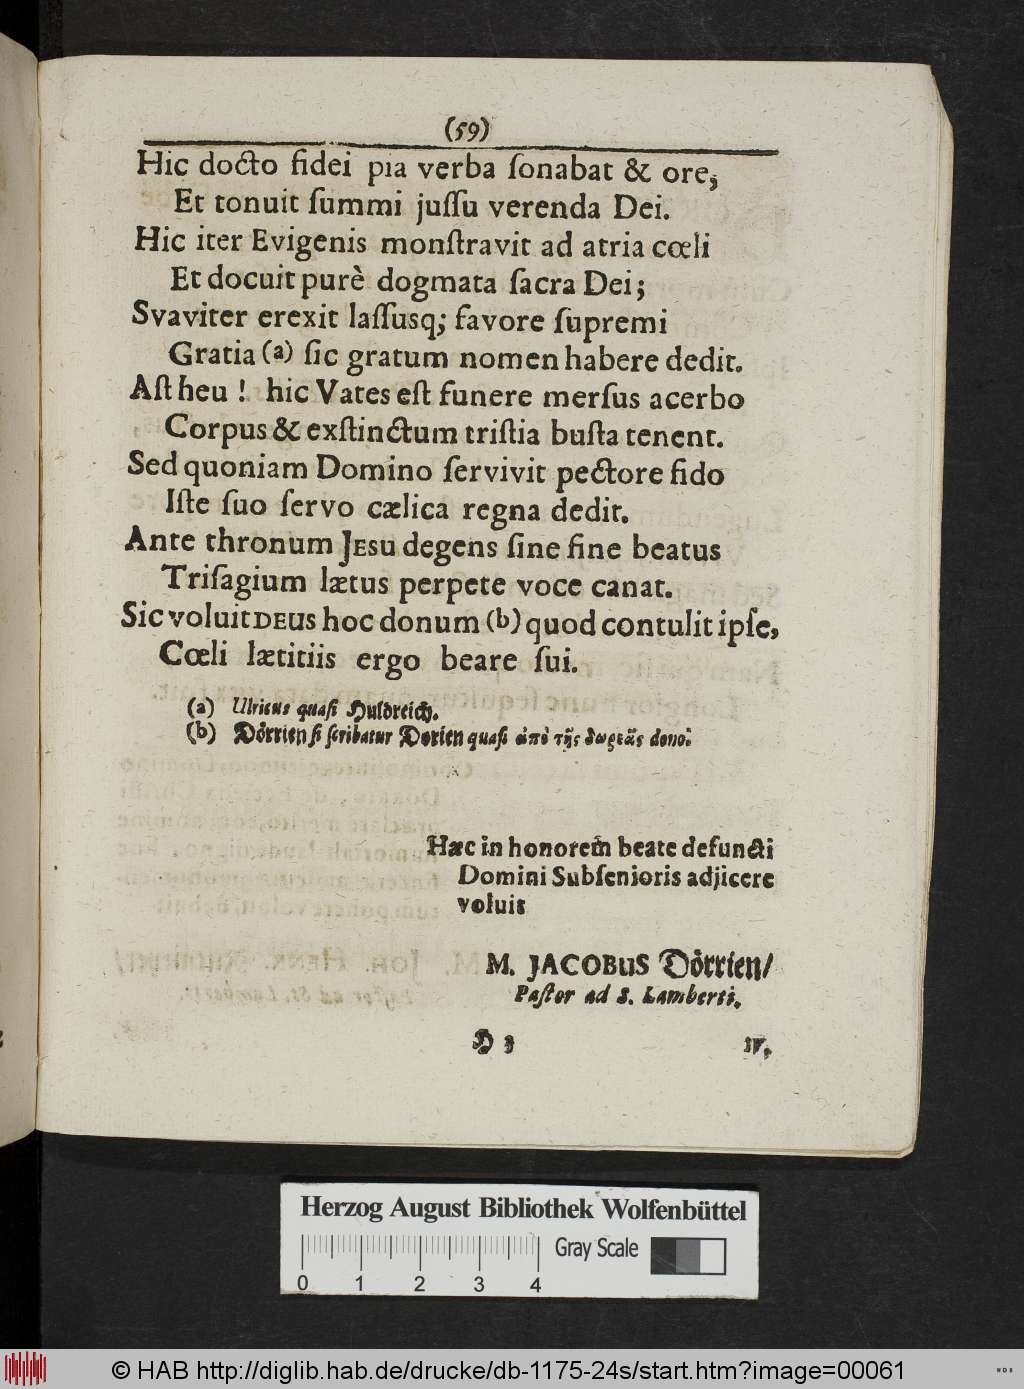 (59)
Hic docto fidei pia verba ſonabat & ore;
Et tonuit ſummi juſſu verenda Dei.
Hic iter Evigenis monſtravit ad atria cœli
Et docuit purè dogmata ſacra Dei;
Svaviter erexit laſſusq; favore ſupremi
Gratia (a) ſic gratum nomen habere dedit.
Aſt heu ! hic Vates eſt funere merſus acerbo
Corpus & exſtinctum triſtia buſta tenent.
Sed quoniam Domino ſervivit pectore fido
Iſte ſuo ſervo cælica regna dedit.
Ante thronum JESU degens ſine fine beatus
Triſagium lætus perpete voce canat.
Sic voluit DEUS hoc donum (b) quod contulit ipſe,
Cœli lætitiis ergo beare ſui.
(a) Ulricus quaſi Huldreich.
(b) Dörrien ſi ſcribatur Dorien quaſi ἀπὸ τῆς δωρεᾶς donoi
Hæc in honorem beate defuncti
Domini Subſenioris adjicere
voluit
M. JACOBUS Dörrien/
Paſtor ad S. Lamberti.
H 3
IV.
Herzog August Bibliothek Wolfenbüttel
Gray Scale
0 1 2 3 4
© HAB http://diglib.hab.de/drucke/db-1175-24s/start.htm?image=00061